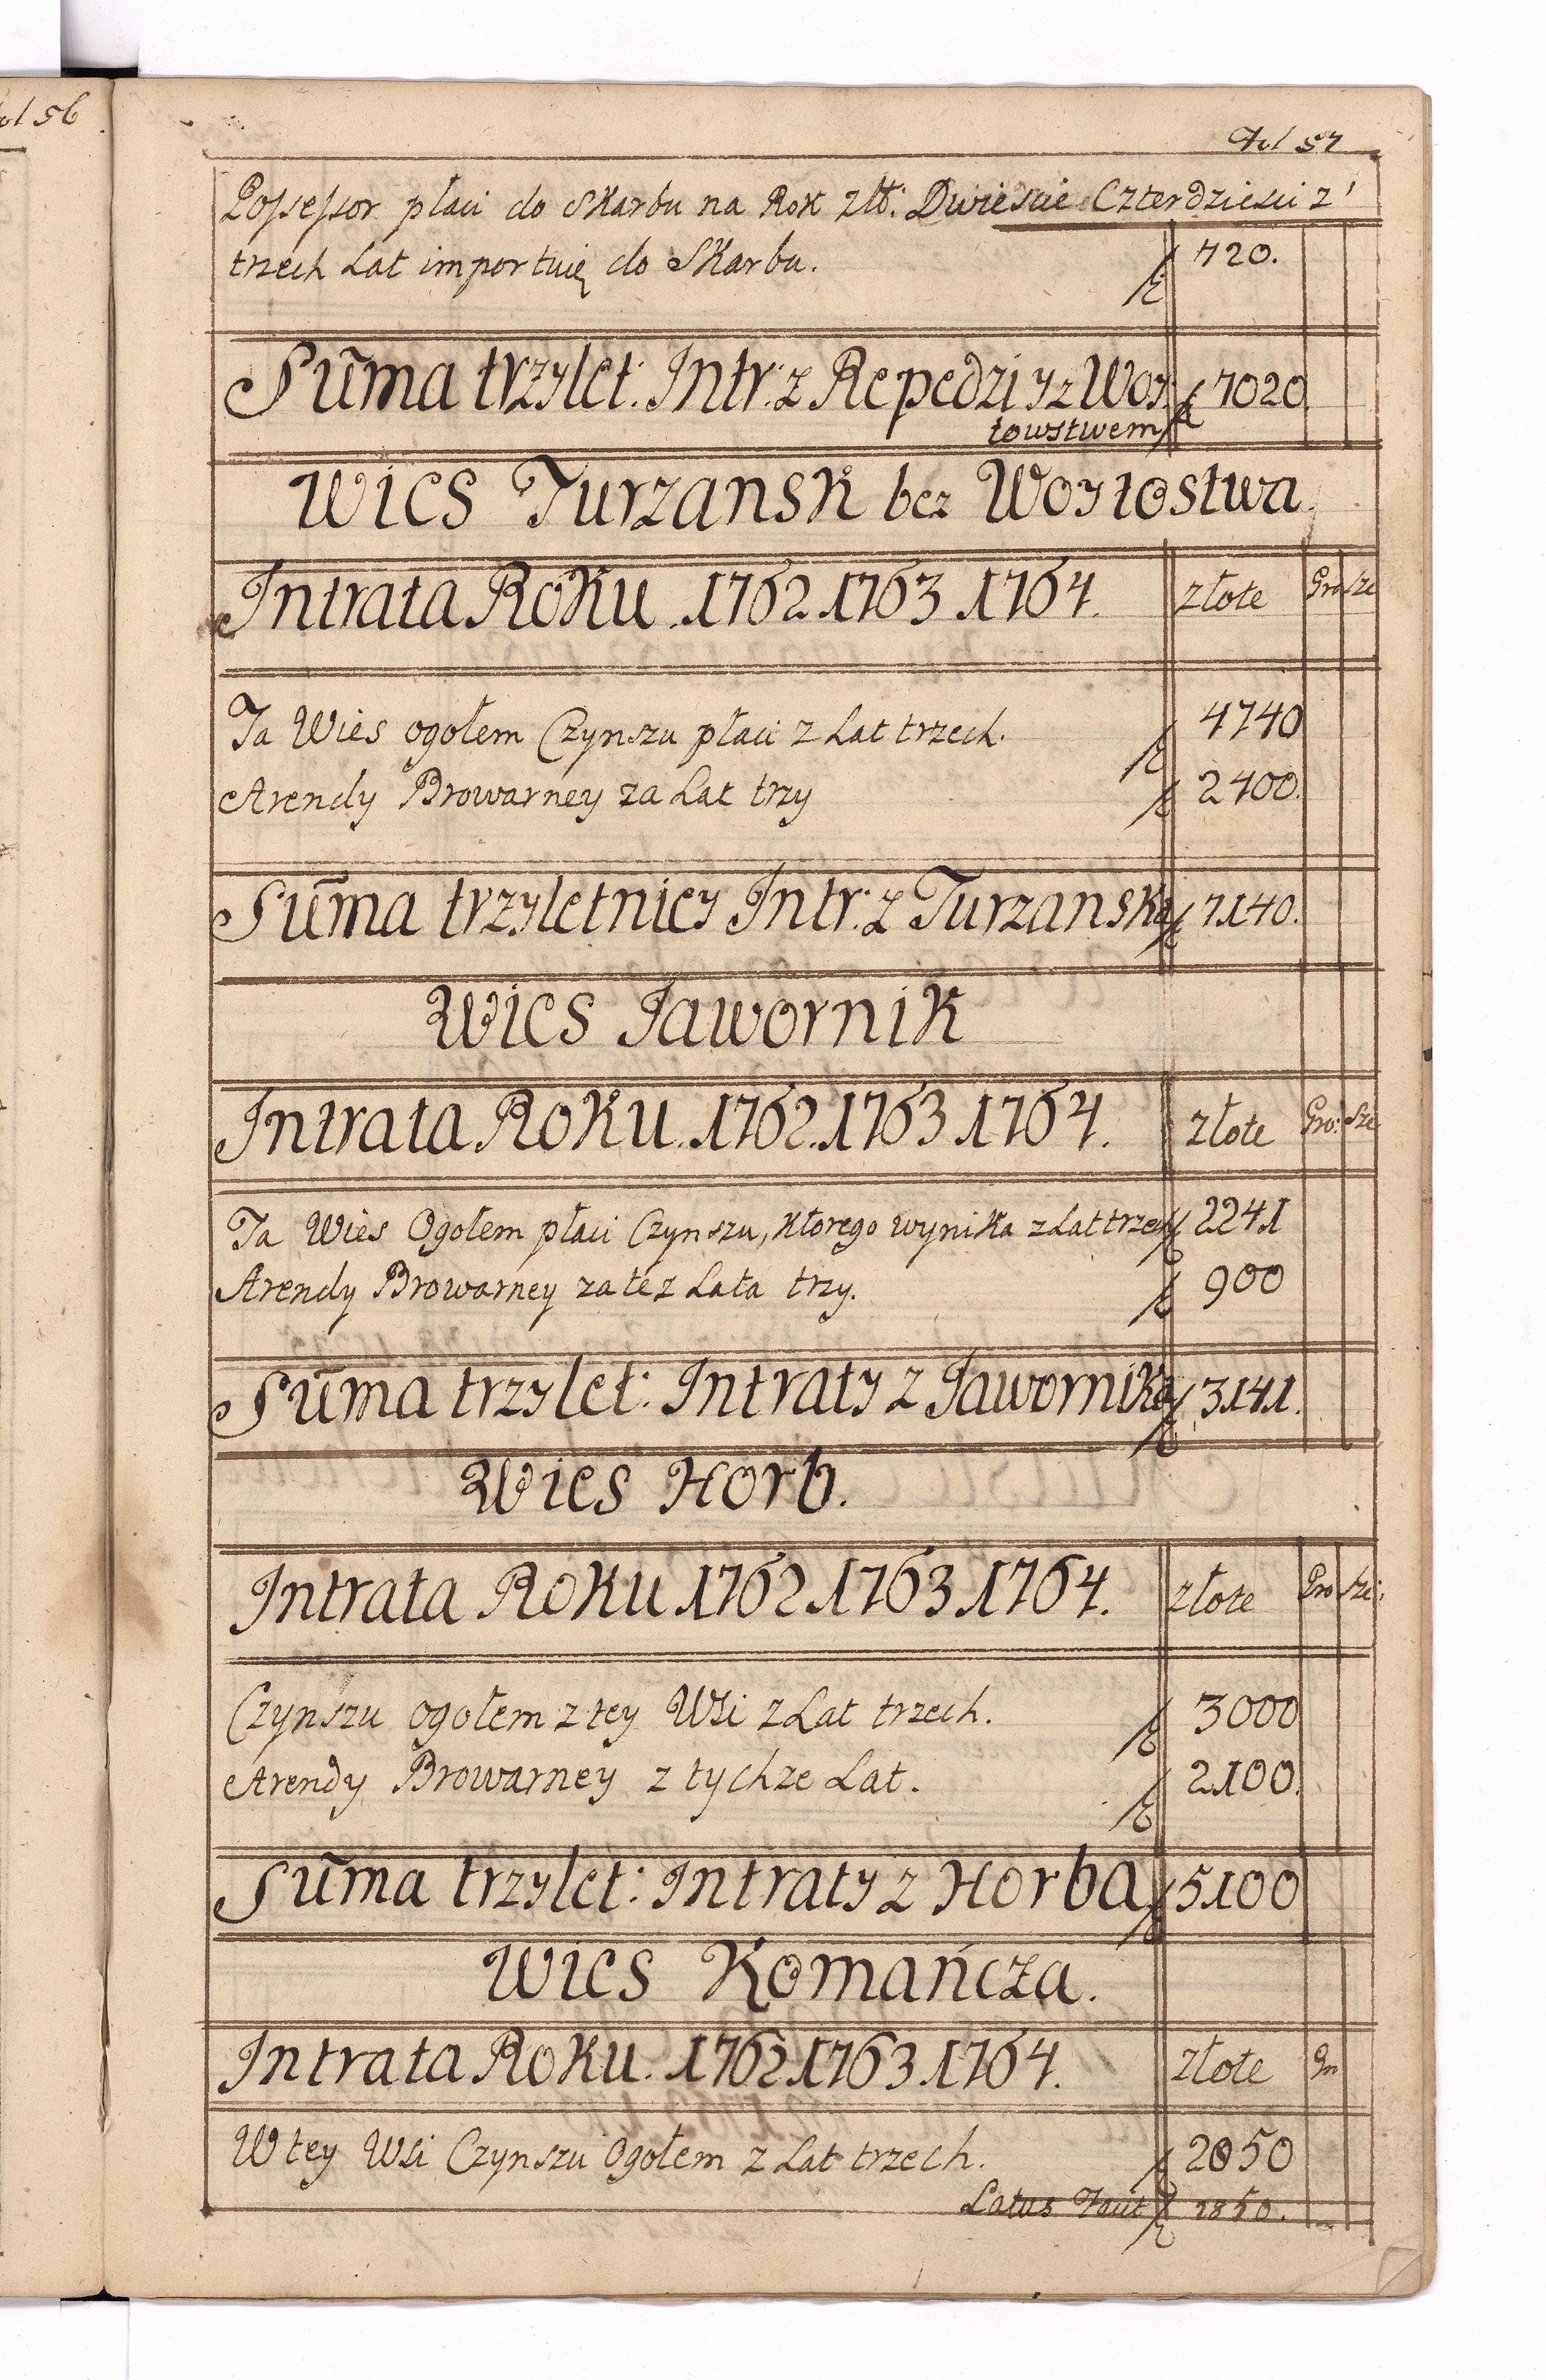 ol 56
Fol 57
Possessor płaci do Skarbu na Rok złł: Dwiescie Czterdziesci z
trzech Lat importuię do Skarbu. 720.
Sum̃a trzylet: Intr: z Repedzi y z Woy 7020
towstwem
Wies Turzansk bez Woytostwa
Intrata Roku .1762.1763.1764. złote Gro sze
Ta Wies ogołem Czynszu płaci z Lat trzech. 4740
Arendy Browarney za Lat trzy 2400.
Sum̃a trzyletniey Intr: z Turzanska 7140.
Wies Jawornik
Intrata Roku .1762.1763.1764. złote Gro: sze
Ta Wies Ogołem płaci Czynszu, ktorego wynika z Lat trzech 2241
Arendy Browarney za tez Lata trzy. 900
Sum̃a trzylet: Intraty z Jawornika 3141.
Wies Horb.
Intrata Roku 1762.1763.1764. złote Gro sze:
Czynszu ogołem z tey Wsi z Lat trzech. 3000
Arendy Browarney z tychze Lat. 2100.
Sum̃a trzylet: Intraty z Horba 5100
Wies Komańcza.
Intrata Roku. 1762.1763.1764. złote Gr
W tey Wsi Czynszu Ogołem z Lat trzech. 2850
Latus facit 2850.